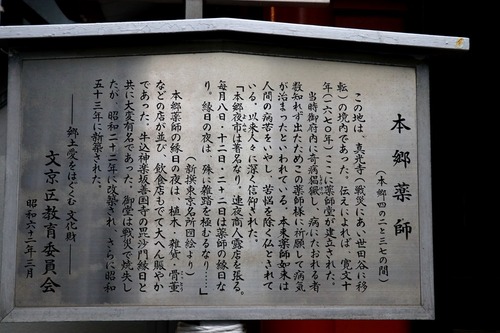 本郷薬師
(本郷四の二と三七の間)
この地は、真光寺(戦災にあい世田谷に移
転)の境内であった。伝えによれば、寛文十
年(一六七〇年)ここに薬師堂が建立された。
当時御府内に奇病猖獗し、病にたおれる者
数知れず出たためこの薬師様に祈願して病気
が治まったといわれている。本来薬師如来は
人間の病苦をいやし、苦悩を除く仏とされて
いる。以来人々に深く信仰された。
「本郷夜市は著名なり、連夜商人露店を張る。
毎月八日・十二日・二十二日は薬師の縁日な
り。縁日の夜は、殊に雑踏を極むるなり……」
(新撰東京名所図絵より)
本郷薬師の縁日の夜は、植木、雑貨、骨董
などの店が並び、飲食店もでて大へん賑やか
であった。牛込神楽坂善国寺の毘沙門縁日と
共に大変有名であった。御堂は戦災で焼失し
たが、昭和二十二年に改築され、さらに昭和
五十三年に新築された。
―郷土愛をはぐくむ文化財―
文京区教育委員会
昭和六十三年三月